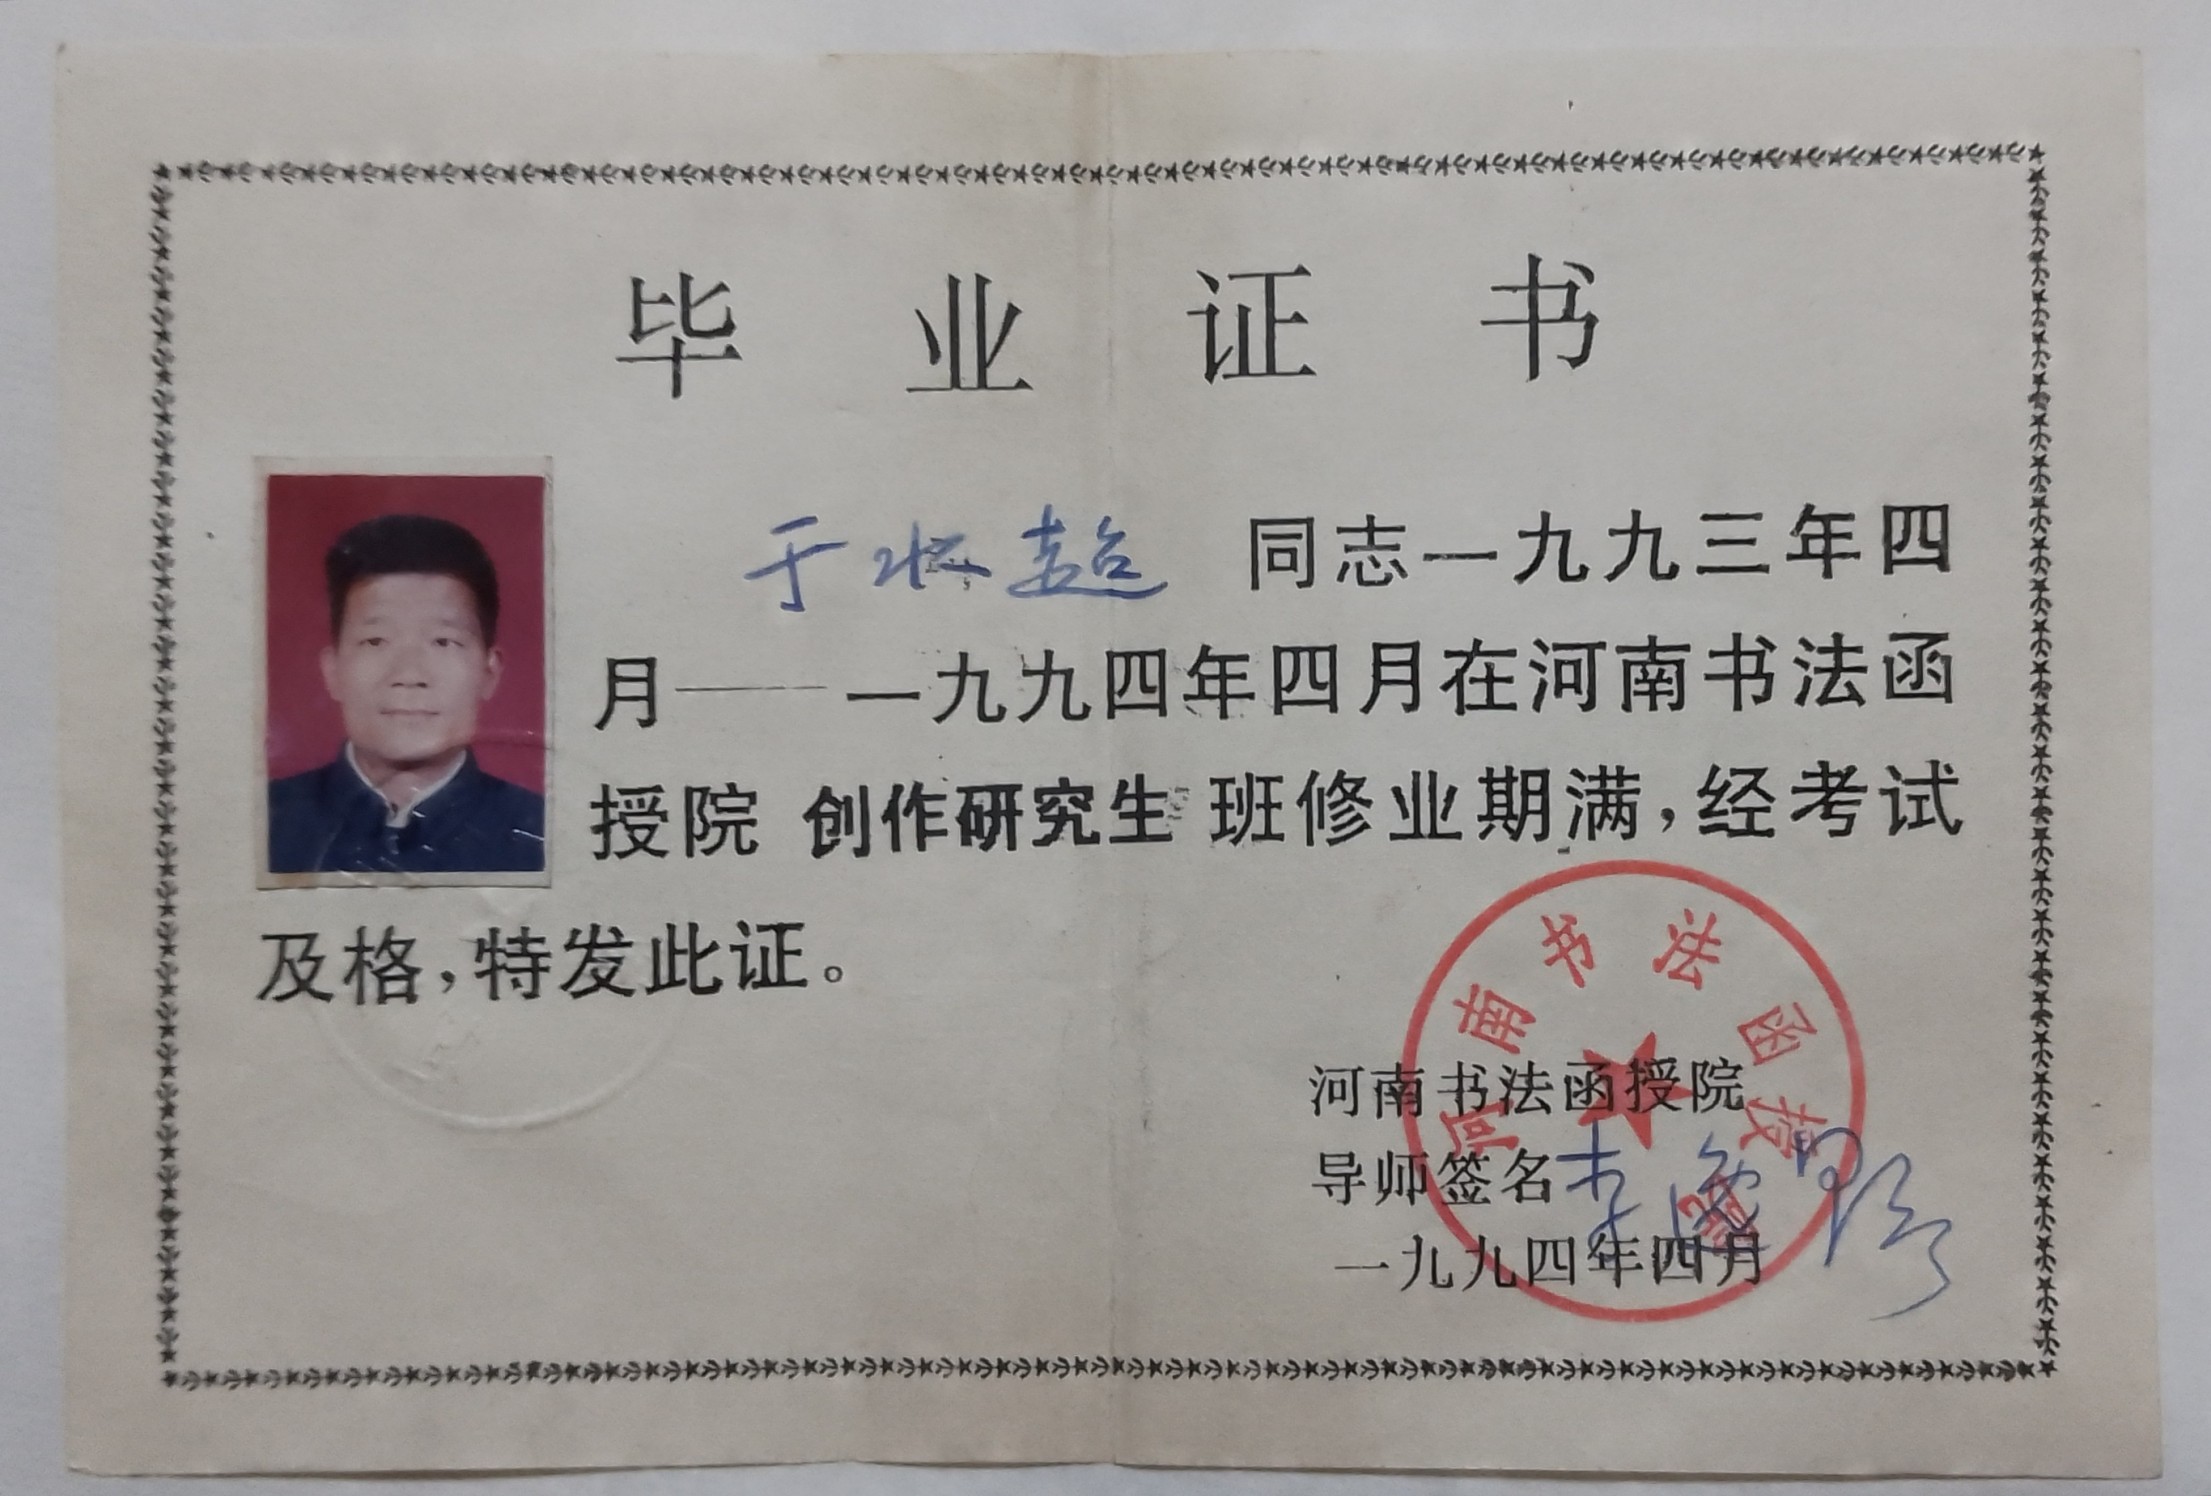 毕业证书
于水超 同志一九九三年四
月——一九九四年四月在河南书法函
授院 创作研究生 班修业期满，经考试
及格，特发此证。
河南书法函授院
河南书法函授院
导师签名
一九九四年四月